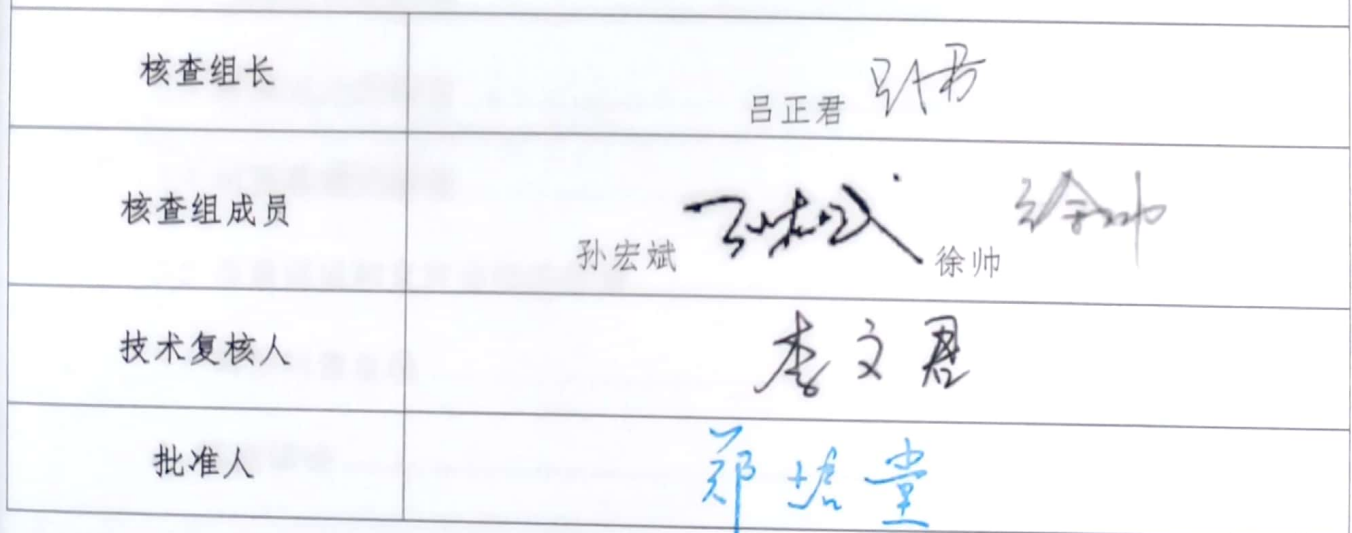 核查组长
吕正君 吕正君
核查组成员
孙宏斌 孙宏斌 徐帅 徐帅
技术复核人
李文君
批准人
郑培堂